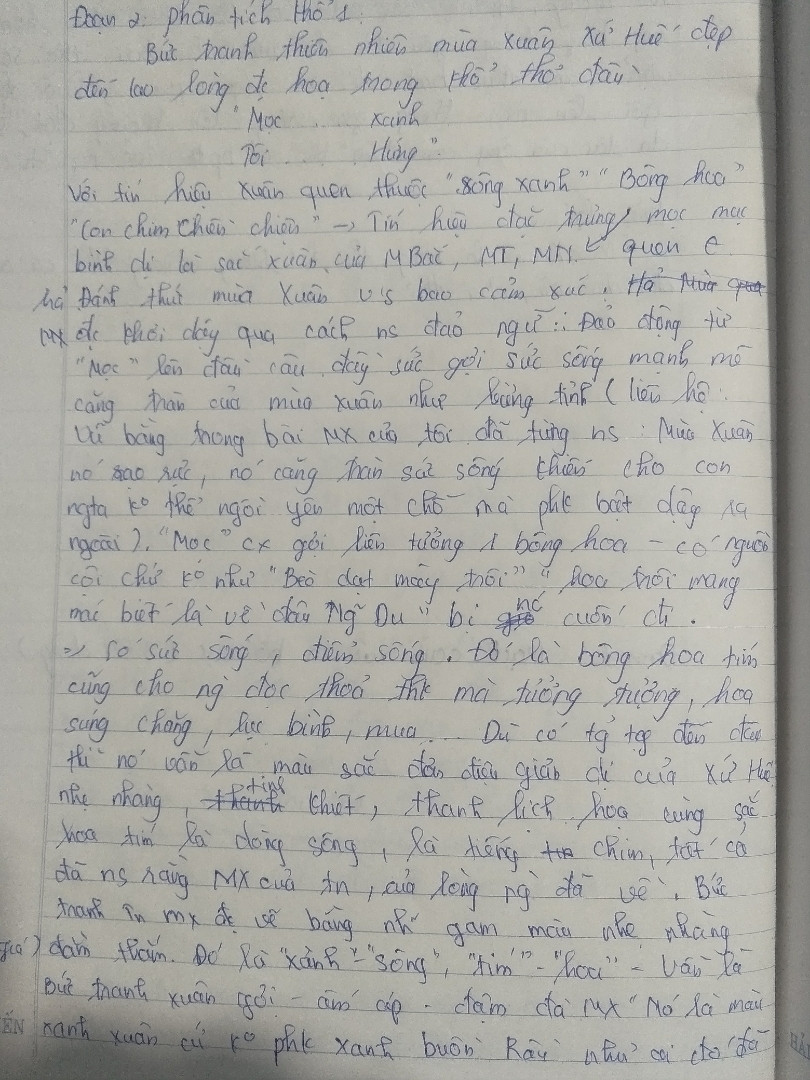 Đoạn 2: phân tích thổ 1.
Bức tranh thiên nhiên mùa xuân xứ Huế đẹp
đến lao lòng đc hoạ trong khổ thơ đầu
"Mọc ... xanh
Tôi ..... Hứng".
Với tín hiệu xuân quen thuộc "sông xanh" "Bông hoa"
"Con chim chiền chiện" -> Tín hiệu đặc trưng mộc mạc
bình dị là sắc xuân của MBắc, MT, MN. quen
Đánh thức mùa Xuân v/s bao cảm xúc.
MX đc khơi dậy qua cách ns đảo ngữ: Đảo động từ
"Mọc" lên đầu câu đầy sức gợi sức sống mạnh mẽ
căng tràn của mùa xuân như bừng tỉnh (liên hệ:
Vũ bằng trong bài MX của tôi đã từng ns: Mùa Xuân
nó rạo rực, nó căng tràn sức sống khiến cho con
ngta ko thể ngồi yên một chỗ mà phk bật dậy ra
ngoài). "Mọc" cx gợi liên tưởng 1 bông hoa - có nguồn
cội chứ kó như "Bèo dạt mây trôi" " hoa trôi mang
mác biết là về đâu Ng~ Du" bị nc cuốn đi.
=> Có sức sống, điểm sống. Đó là bông hoa tím
cũng cho ng đọc thoả thk mà tưởng tượng, hoa
súng chăng, lục bình, mua... Dù có tg tg đến đâu
thì nó vẫn là màu sắc đơn điệu giản dị của xứ Huế
nhẹ nhàng, tinh khiết, thanh lịch hoa cùng sắc
hoa tím là dòng sông, là tiếng chim, tất cả
đã ns rằng MX của tn, của lòng ng đã về. Bức
tranh tn mx đc vẽ bằng nh~ gam màu nhẹ nhàng
đằm thắm. Đó là "xanh" - "sông", "tím" - "hoa" - Vẫn là
Bức tranh xuân gợi - ấm áp - đậm đà MX "Nó là màu
xanh xuân cứ ko phk xanh buồn Rầu như ai đó đã